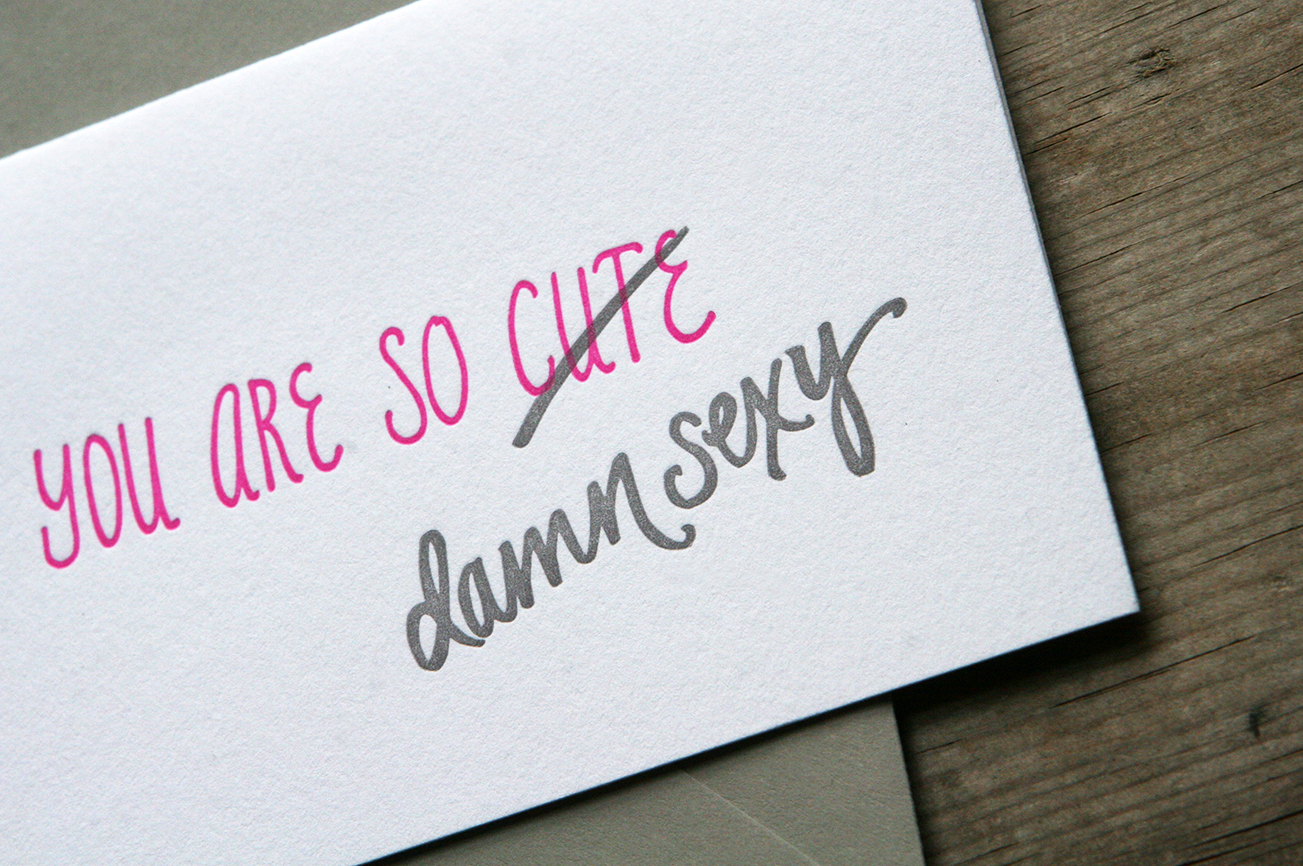 YOU ARE SO CUTE
damn sexy